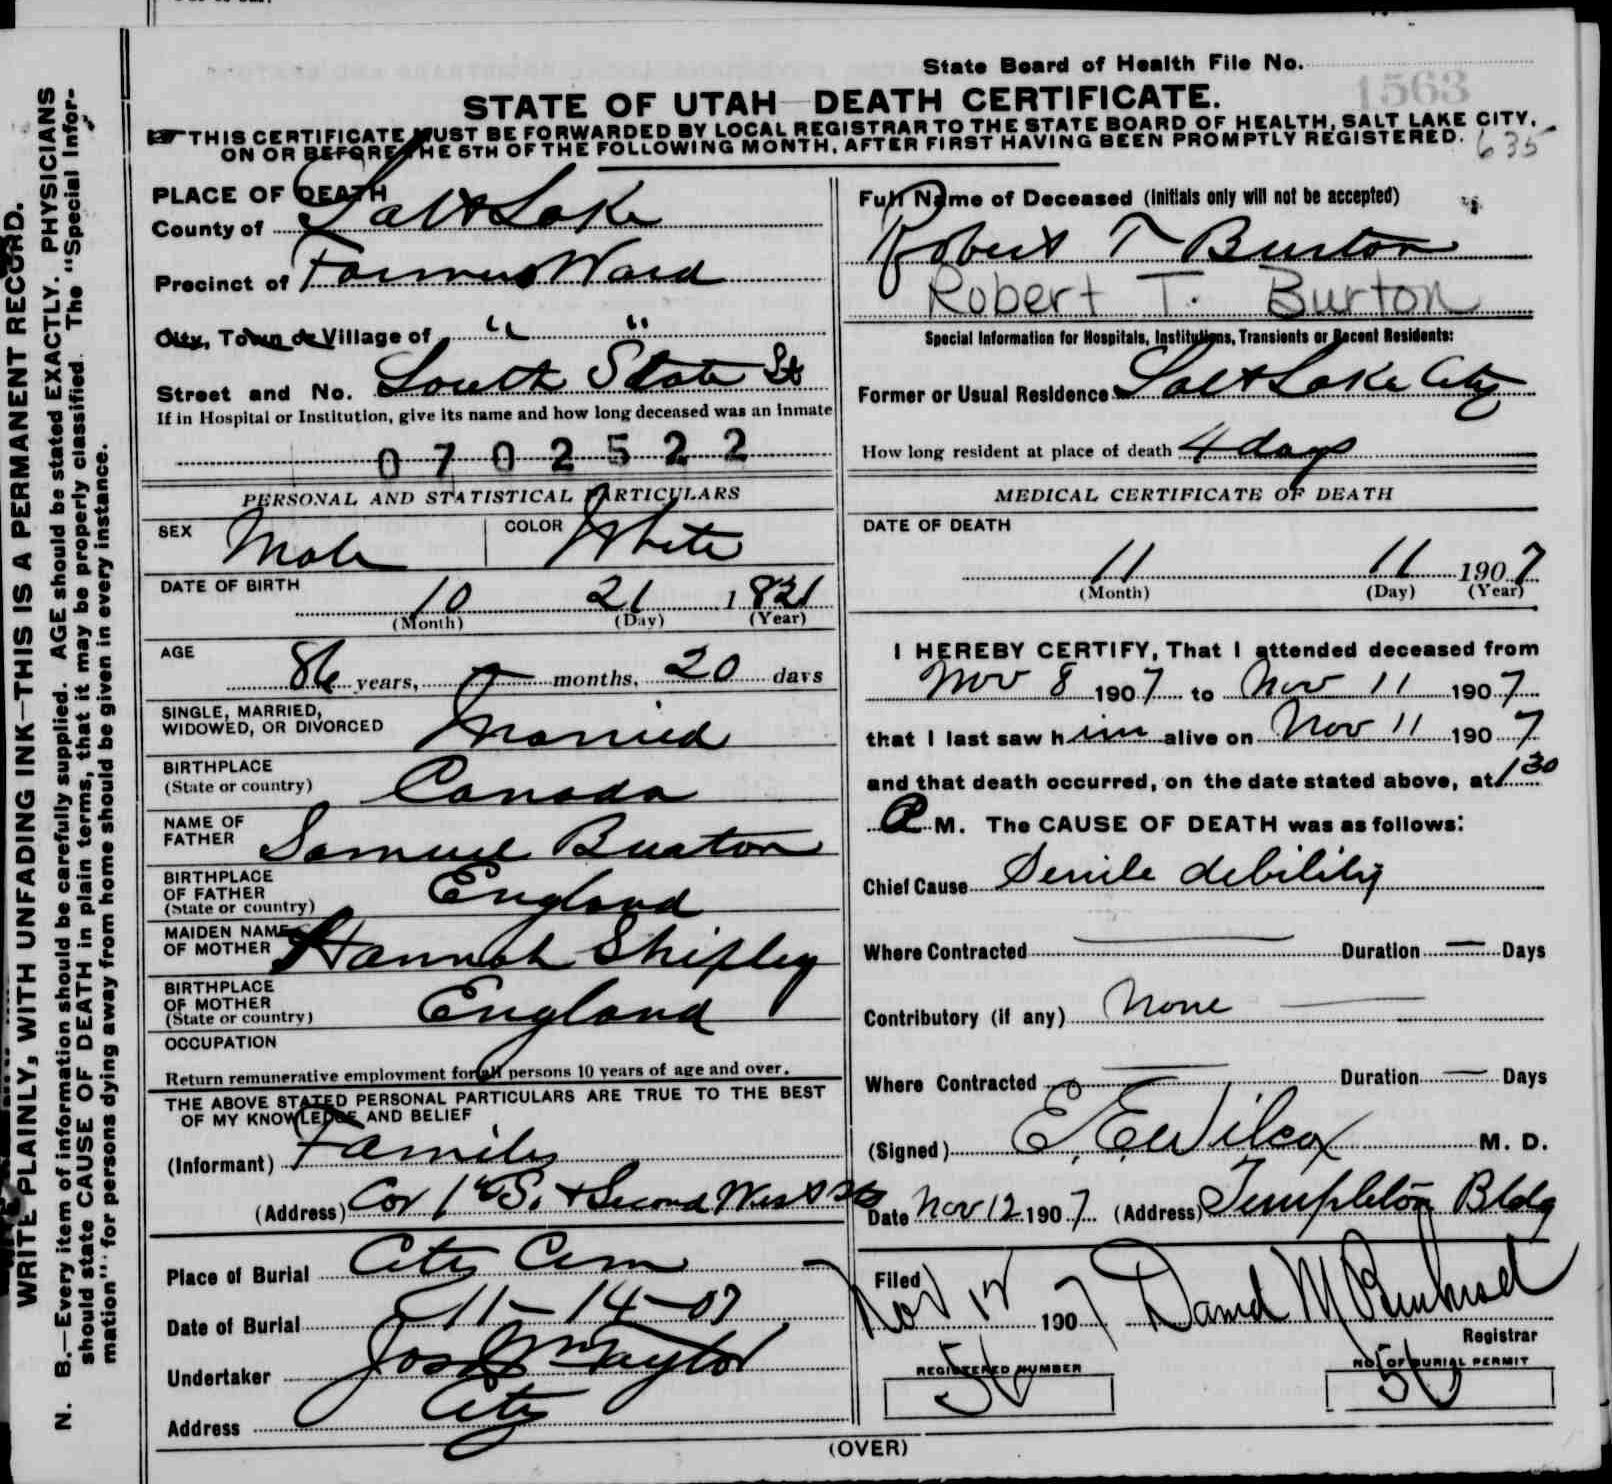 State Board of Health File No.
1563
STATE OF UTAH DEATH CERTIFICATE.
THIS CERTIFICATE MUST BE FORWARDED BY LOCAL REGISTRAR TO THE STATE BOARD OF HEALTH, SALT LAKE CITY,
ON OR BEFORE THE 5TH OF THE FOLLOWING MONTH, AFTER FIRST HAVING BEEN PROMPTLY REGISTERED.
635
WRITE PLAINLY, WITH UNFADING INK—THIS IS A PERMANENT RECORD.
N. B.—Every item of information should be carefully supplied. AGE should be stated EXACTLY. PHYSICIANS
should state CAUSE OF DEATH in plain terms, that it may be properly classified. The "Special Infor-
mation" for persons dying away from home should be given in every instance.
PLACE OF DEATH
County of Salt Lake
Precinct of Farmers Ward
City, Town or Village of " "
Street and No. South State St
If in Hospital or Institution, give its name and how long deceased was an inmate
0702522
PERSONAL AND STATISTICAL PARTICULARS
SEX Male COLOR White
DATE OF BIRTH
10 21 1821
(Month) (Day) (Year)
AGE
86 years, — months, 20 days
SINGLE, MARRIED,
WIDOWED, OR DIVORCED Married
BIRTHPLACE
(State or country) Canada
NAME OF
FATHER Samuel Burton
BIRTHPLACE
OF FATHER
(State or country) England
MAIDEN NAME
OF MOTHER Hannah Shipley
BIRTHPLACE
OF MOTHER
(State or country) England
OCCUPATION
Return remunerative employment for all persons 10 years of age and over.
THE ABOVE STATED PERSONAL PARTICULARS ARE TRUE TO THE BEST
OF MY KNOWLEDGE AND BELIEF
(Informant) Family
(Address) Cor 1st S. & Second West Sts
Place of Burial City Cem
Date of Burial 11-14-07
Undertaker Jos Wm Taylor
Address City
Full Name of Deceased (Initials only will not be accepted)
Robert T Burton
Robert T. Burton
Special Information for Hospitals, Institutions, Transients or Recent Residents:
Former or Usual Residence Salt Lake City
How long resident at place of death 4 days
MEDICAL CERTIFICATE OF DEATH
DATE OF DEATH
11 11 1907
(Month) (Day) (Year)
I HEREBY CERTIFY, That I attended deceased from
Nov 8 1907 to Nov 11 1907
that I last saw him alive on Nov 11 1907
and that death occurred, on the date stated above, at 1 30
P M. The CAUSE OF DEATH was as follows:
Chief Cause Senile debility
Where Contracted — Duration — Days
Contributory (if any) None
Where Contracted — Duration — Days
(Signed) E. E. Wilcox M. D.
Date Nov 12 1907 (Address) Templeton Bldg
Filed
Nov 12 1907 David M
Registrar
REGISTERED NUMBER
56
NO. OF BURIAL PERMIT
56
(OVER)